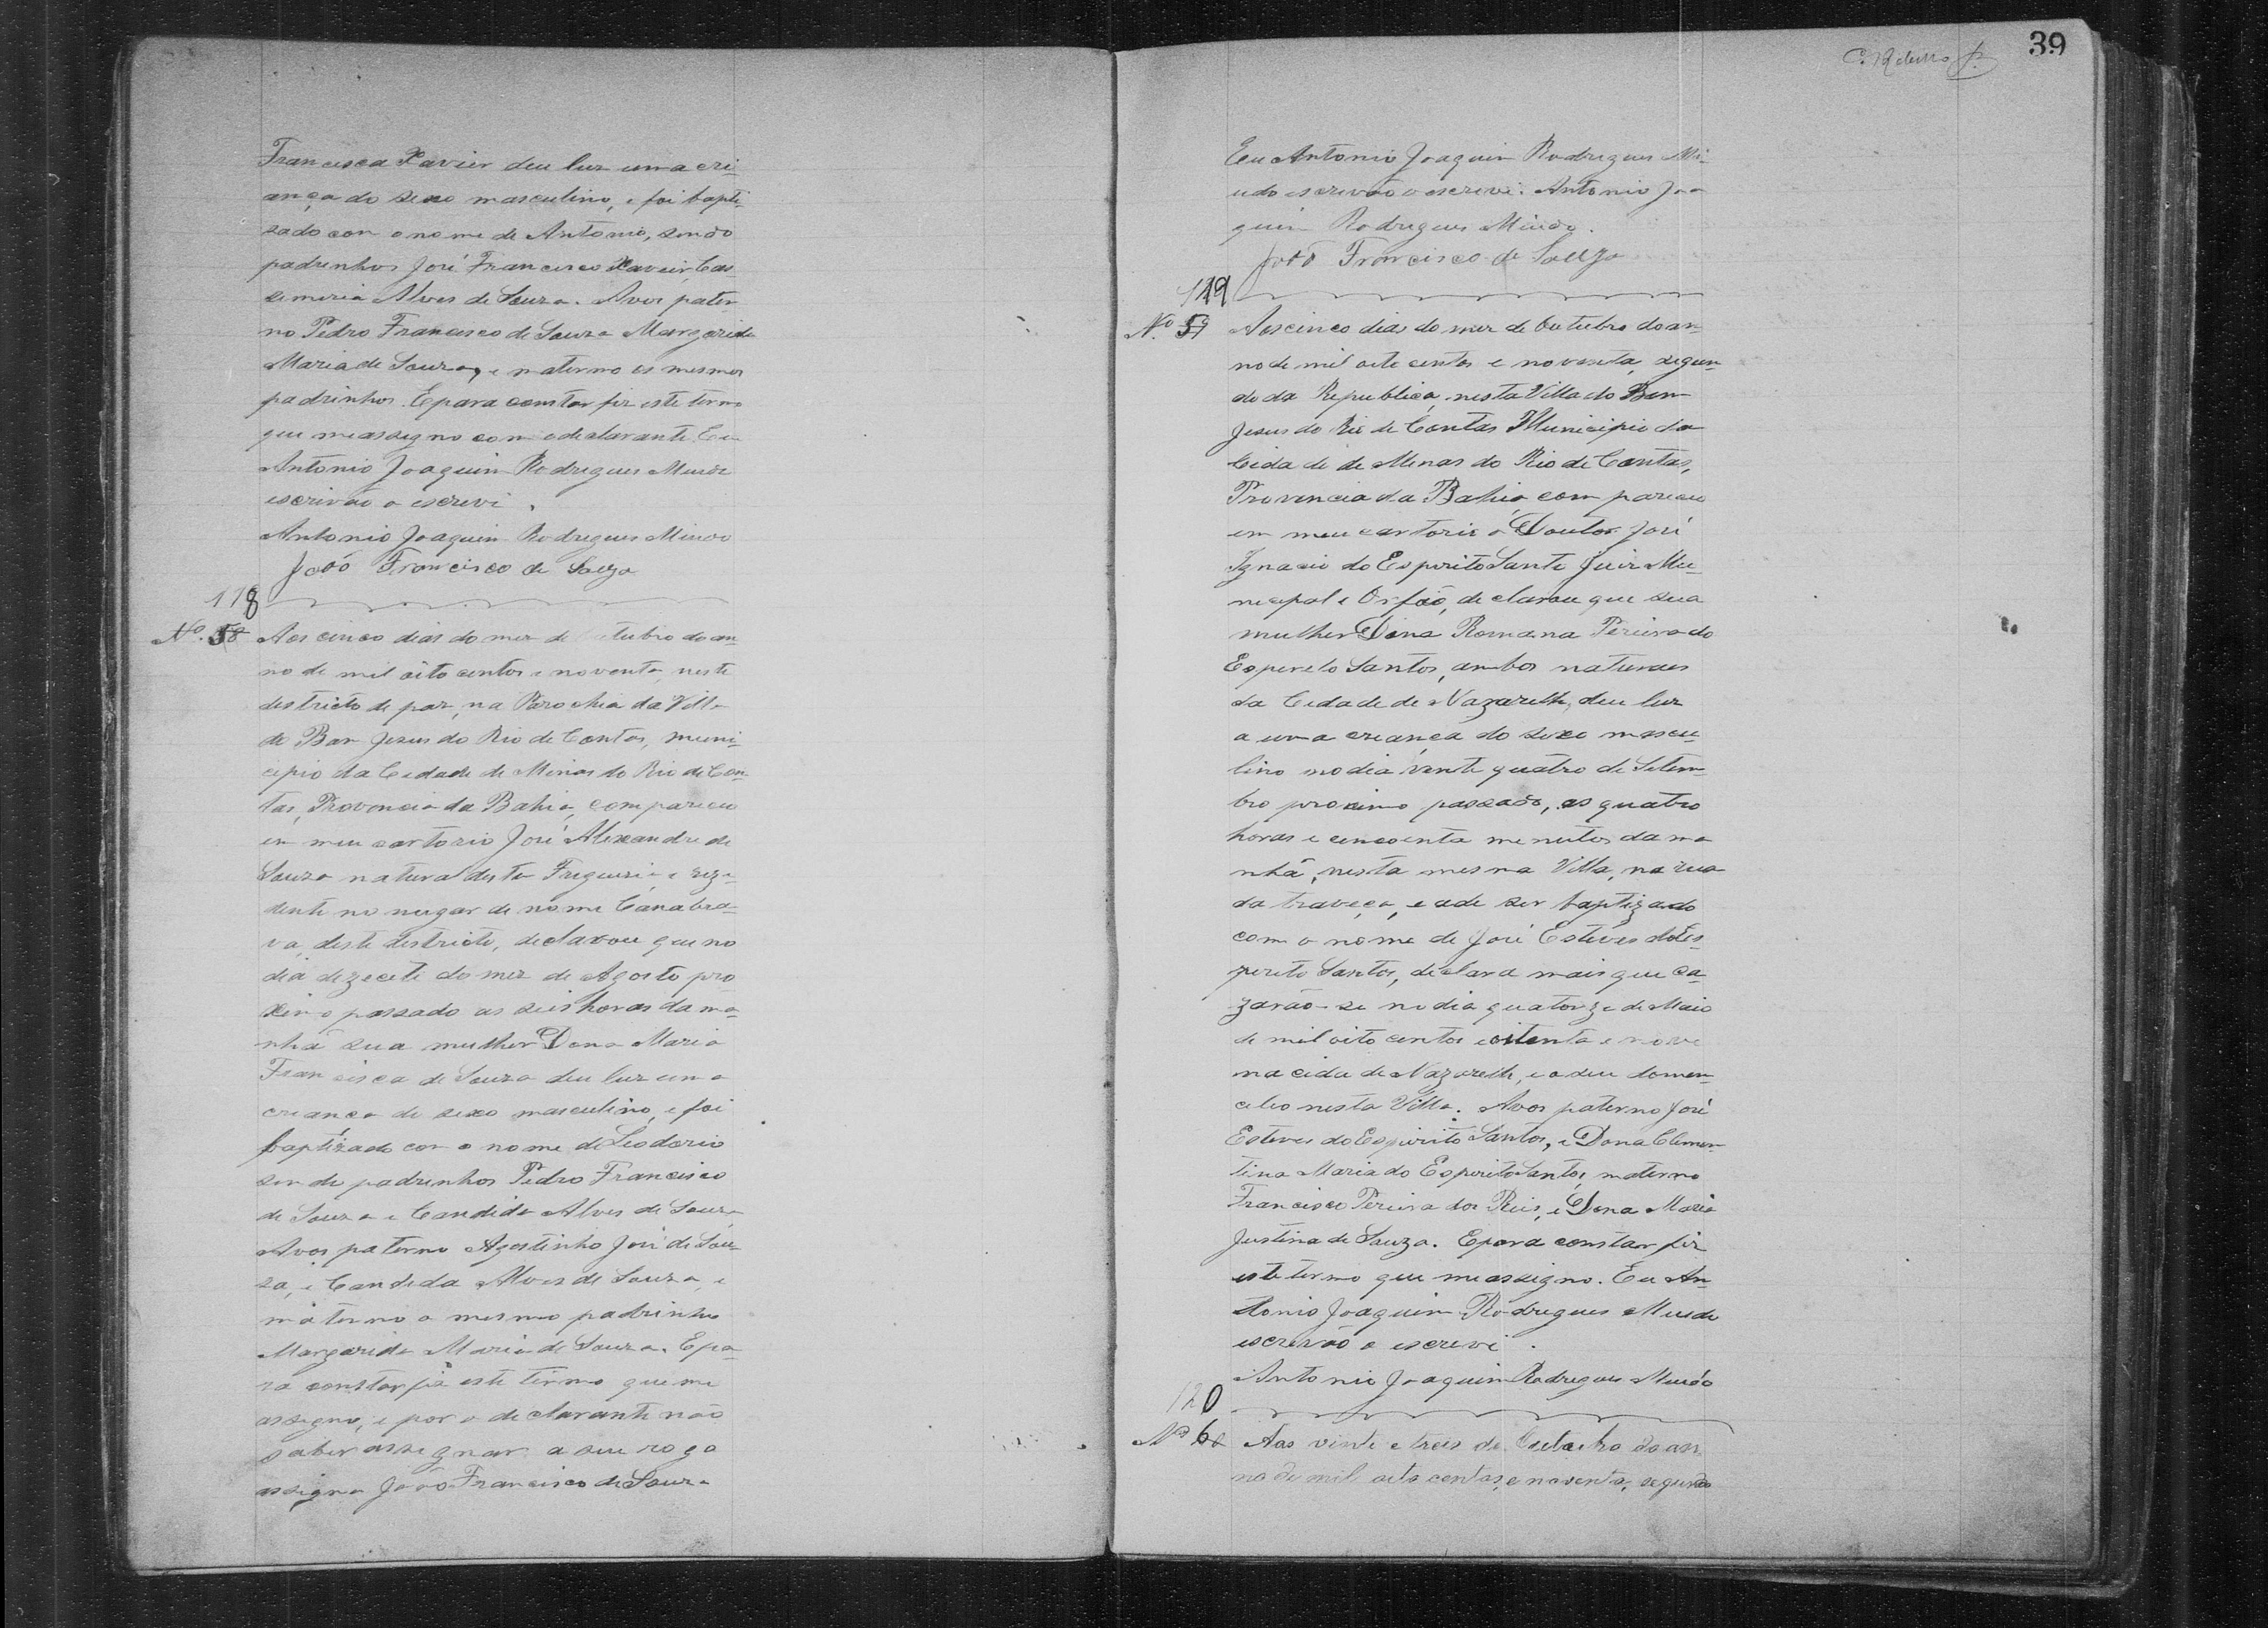 Francisca Xavier deu luz uma cri-
ança do sexo masculino, e foi bapti-
sado com o nome de Antonio, sendo
padrinhos José Francisco Xavier, Cas
semeria Alves de Souza. Avos pater-
no Pedro Francisco de Souza Margarida
Maria de Souza, e materno os mesmos
padrinhos. E para constar fiz este termo
que me assigno com o declarante. Eu
Antonio Joaquim Rodrigues Miudo
escrivão o escrevi.
Antonio Joaquim Rodrigues Miudo
João Francisco de Souza
118
No. 58 Aos cinco dias do mez de Outubro do an-
no de mil oito centos e noventa, neste
destricto de paz, na Parochia da Villa
do Bom Jesus do Rio de Contas, muni-
cepio da Cedade de Minas do Rio de Con-
tas, Provoncia da Bahia, compareceu
em meu cartorio José Alexandre de
Souza natural desta Freguezia e reze-
dente no nugar de nome Canabra-
va, deste destricto, declarou que no
dia dezecete do mez de Agosto pro
ximo passado as seis horas da ma-
nhã sua mulher Dona Maria
Francisca de Souza deu luz uma
creança do sexo masculino, e foi
baptizado com o nome de Leodorio
sendo padrinhos Pedro Francisco
de Souza e Candida Alves de Souza
Avos paterno Agostinho José de Sou-
za, e Candeda Alves de Souza, e
materno o mesmo padrinho
Margarida Maria de Souza. E pa-
ra constar fiz este termo que me
assigno, e por o declarante não
saber assegnar a seu rogo
assigna João Francisco de Souza
39
Eu Antonio Joaquim Rodrigues Mi-
udo escrevão o escrevi. Antonio Joa
quim Rodrigues Miudo.
João Francisco de Souza
119
No. 59 Aos cinco dias do mez de Outubro do an-
no de mil oito centos e noventa, segun-
do da Republica, nesta Villa do Bom
Jesus do Rio de Contas Municipio da
Cidade de Minas do Rio de Contas,
Provencia da Bahia, compareceu
em meu cartorio o Doutor José
Ignacio do Espirito Santo Juiz Mu-
necepal e Orfão, declarou que sua
mulher Dona Romana Pereira do
Espereto Santos, ambos naturaes
da Cedade de Nazareth, deu luz
a uma creança do sexo mascu-
lino no dia vente quatro de Setem-
bro proximo passado, as quatro
horas e cencoenta menutos da ma
nhã, nesta mesma Villa, na rua
da traveça, e ade ser baptizado
com o nome de José Esteves do Es-
pereto Santos, declara mais que ca-
zarão-se no dia quatorze de Maio
de mil oito centos e oitenta e nove
na cida de Nazareth, e o seu domen-
celio nesta Villa. Avos paterno José
Esteves do Espirito Santos, e Dona Clemen-
tina Maria do Esperito Santos, materno
Francisco Pereira dos Reis, e Dona Maria
Justina de Souza. E para constar fiz
este termo que me assigno. Eu An-
tonio Joaquim Rodrigues Miudo
escrevão o escrevi.
Antonio Joaquim Rodrigues Miudo
120
No 60 Aos vinte e treis de Outubro do an
no de mil oito centos, e noventa, segundo